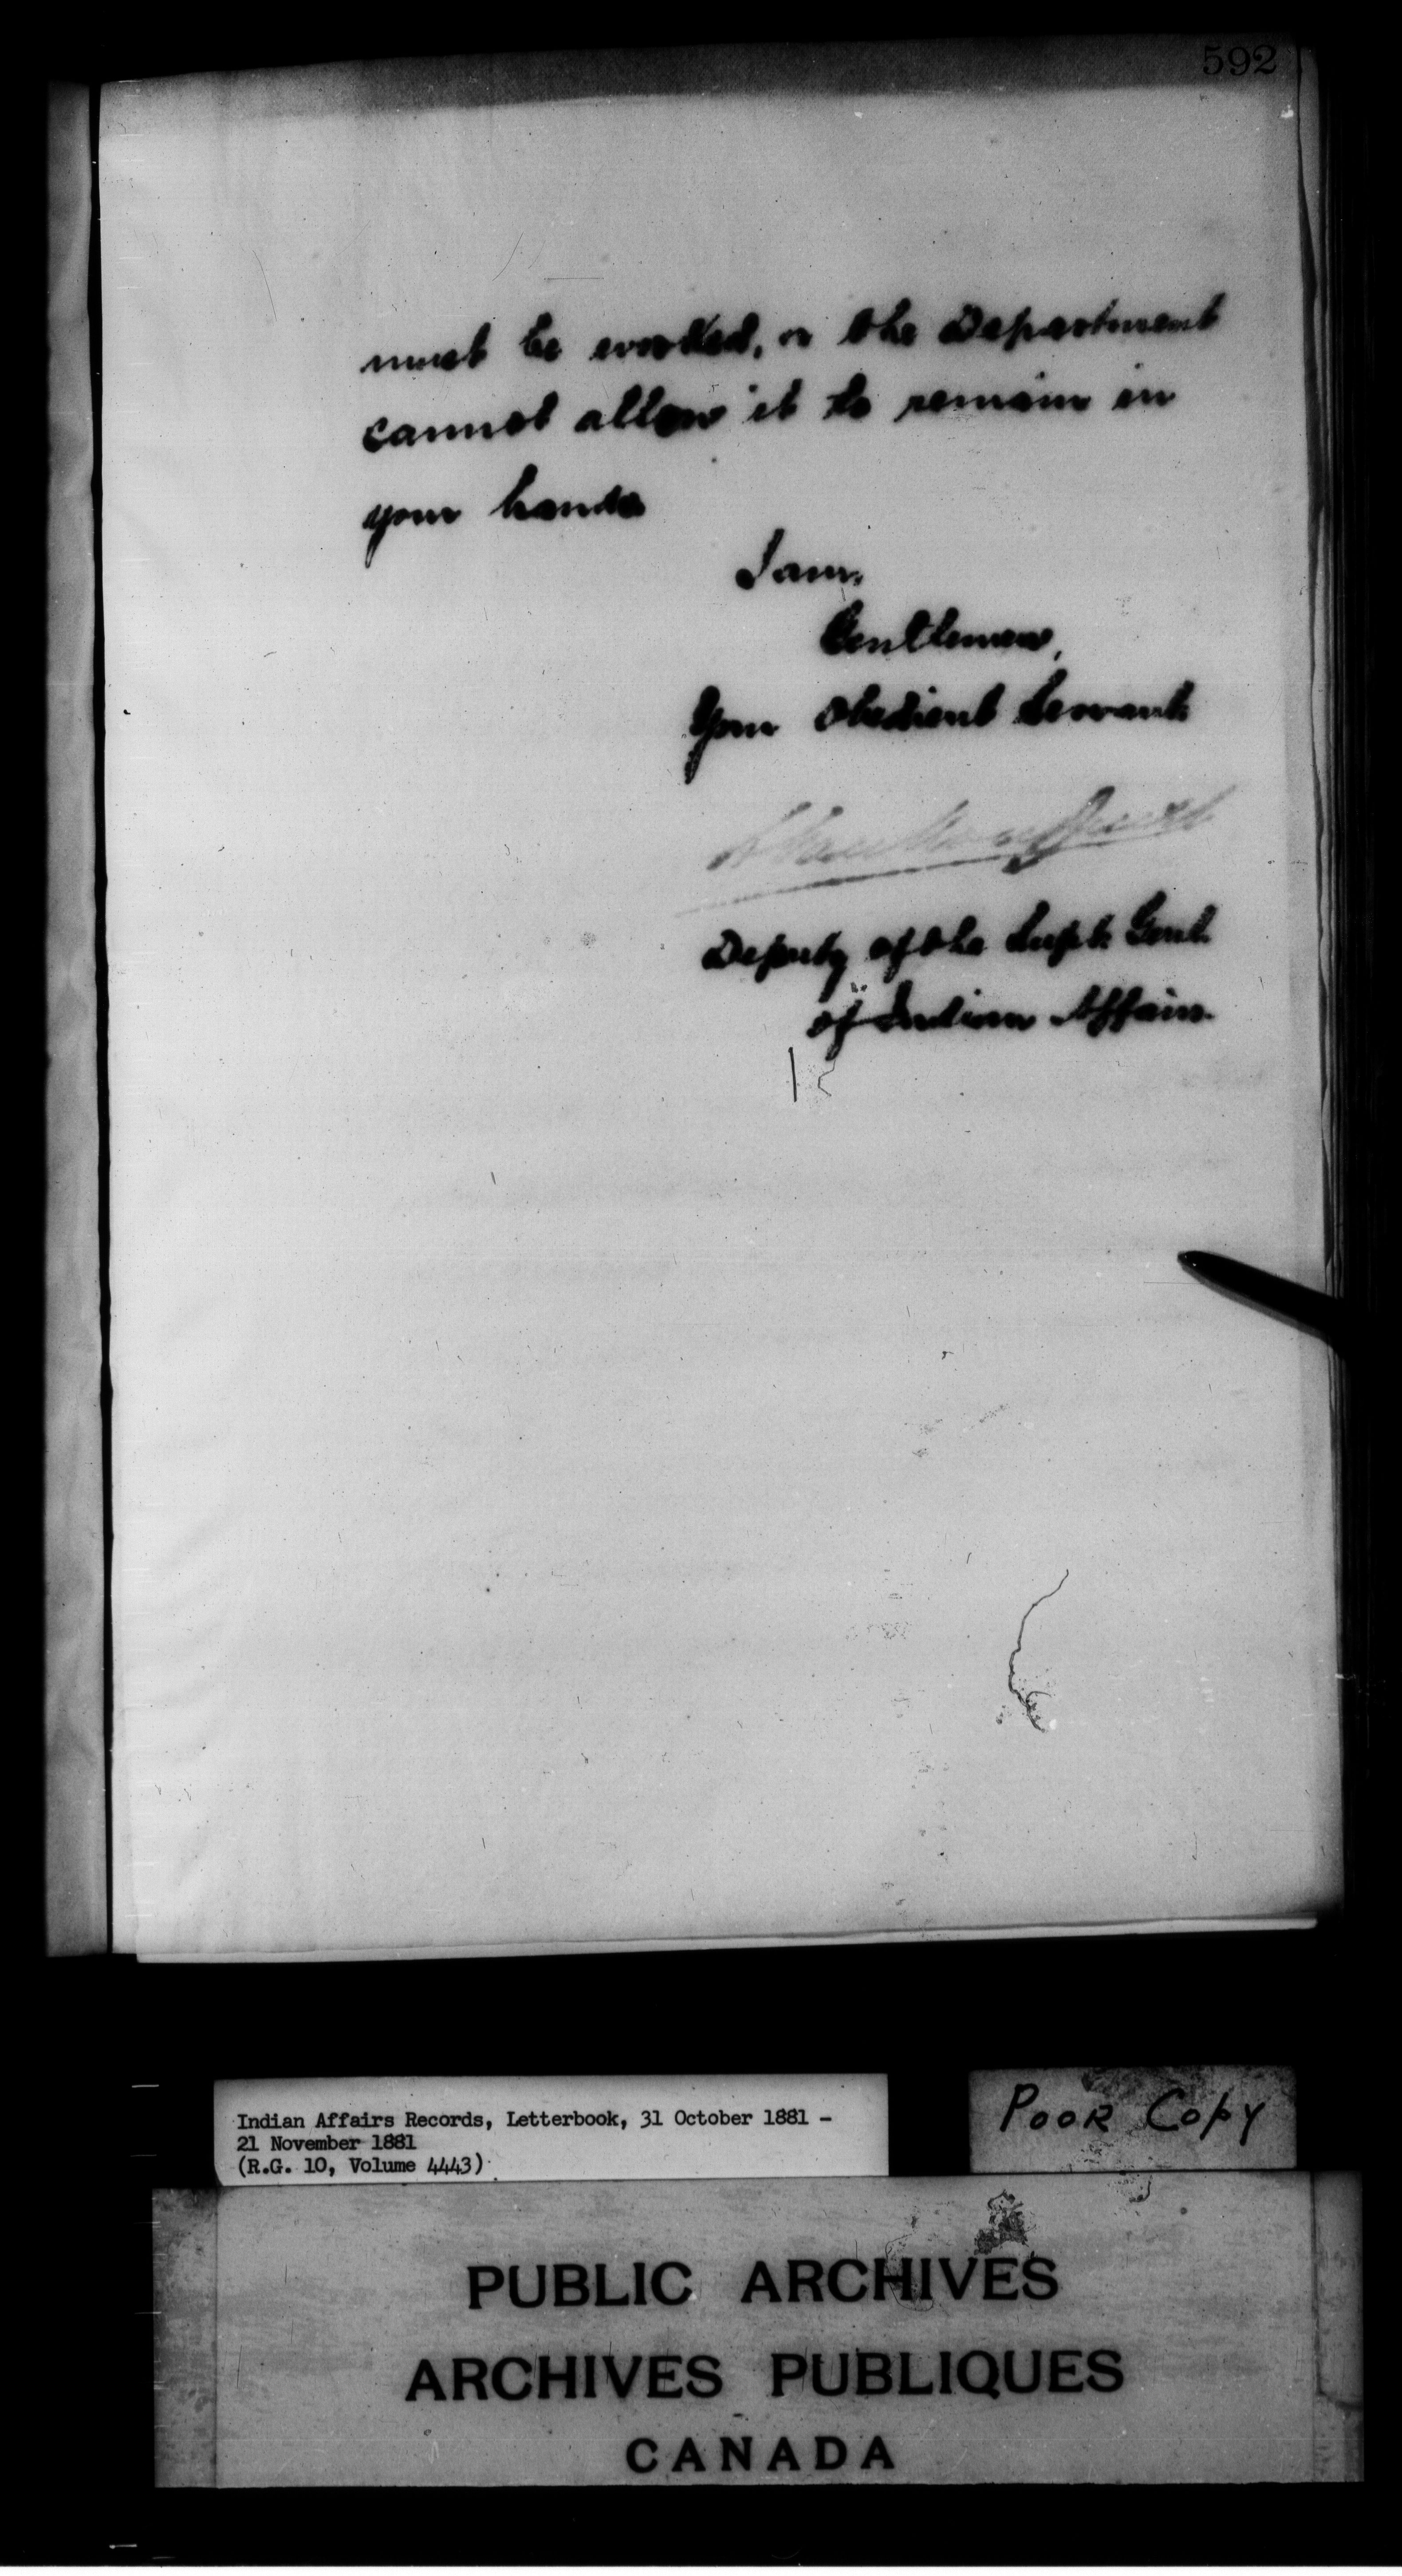 592
must be worked, or the Department
cannot allow it to remain in
your hands
I am,
Gentlemen,
Your Obedient Servant
Deputy of the Supt. Genl.
of Indian Affairs.
Indian Affairs Records, Letterbook, 31 October 1881 -
21 November 1881
(R.G. 10, Volume 4443)
POOR COPY
PUBLIC ARCHIVES
ARCHIVES PUBLIQUES
CANADA